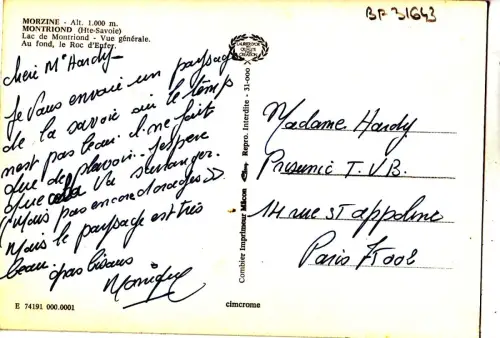 BP 31643
MORZINE - Alt. 1.000 m.
MONTRIOND (Hte-Savoie)
Lac de Montriond - Vue générale.
Au fond, le Roc d'Enfer.
chère Me Hardy
Je vous envoie un paysage
de la savoie ou le temps
n'est pas beau il ne fait
que de pleuvoir. J'espère
que cela va s'arranger.
(Mais pas encore d'orages)
Mais le paysage est très
beau.
gros bisous
Monique
Madame Hardy
Prisunic T.V.B.
14 rue St appoline
Paris 75002
Combier Imprimeur Mâcon Repro. Interdite - 31-000
E 74191 000.0001
cimcrome